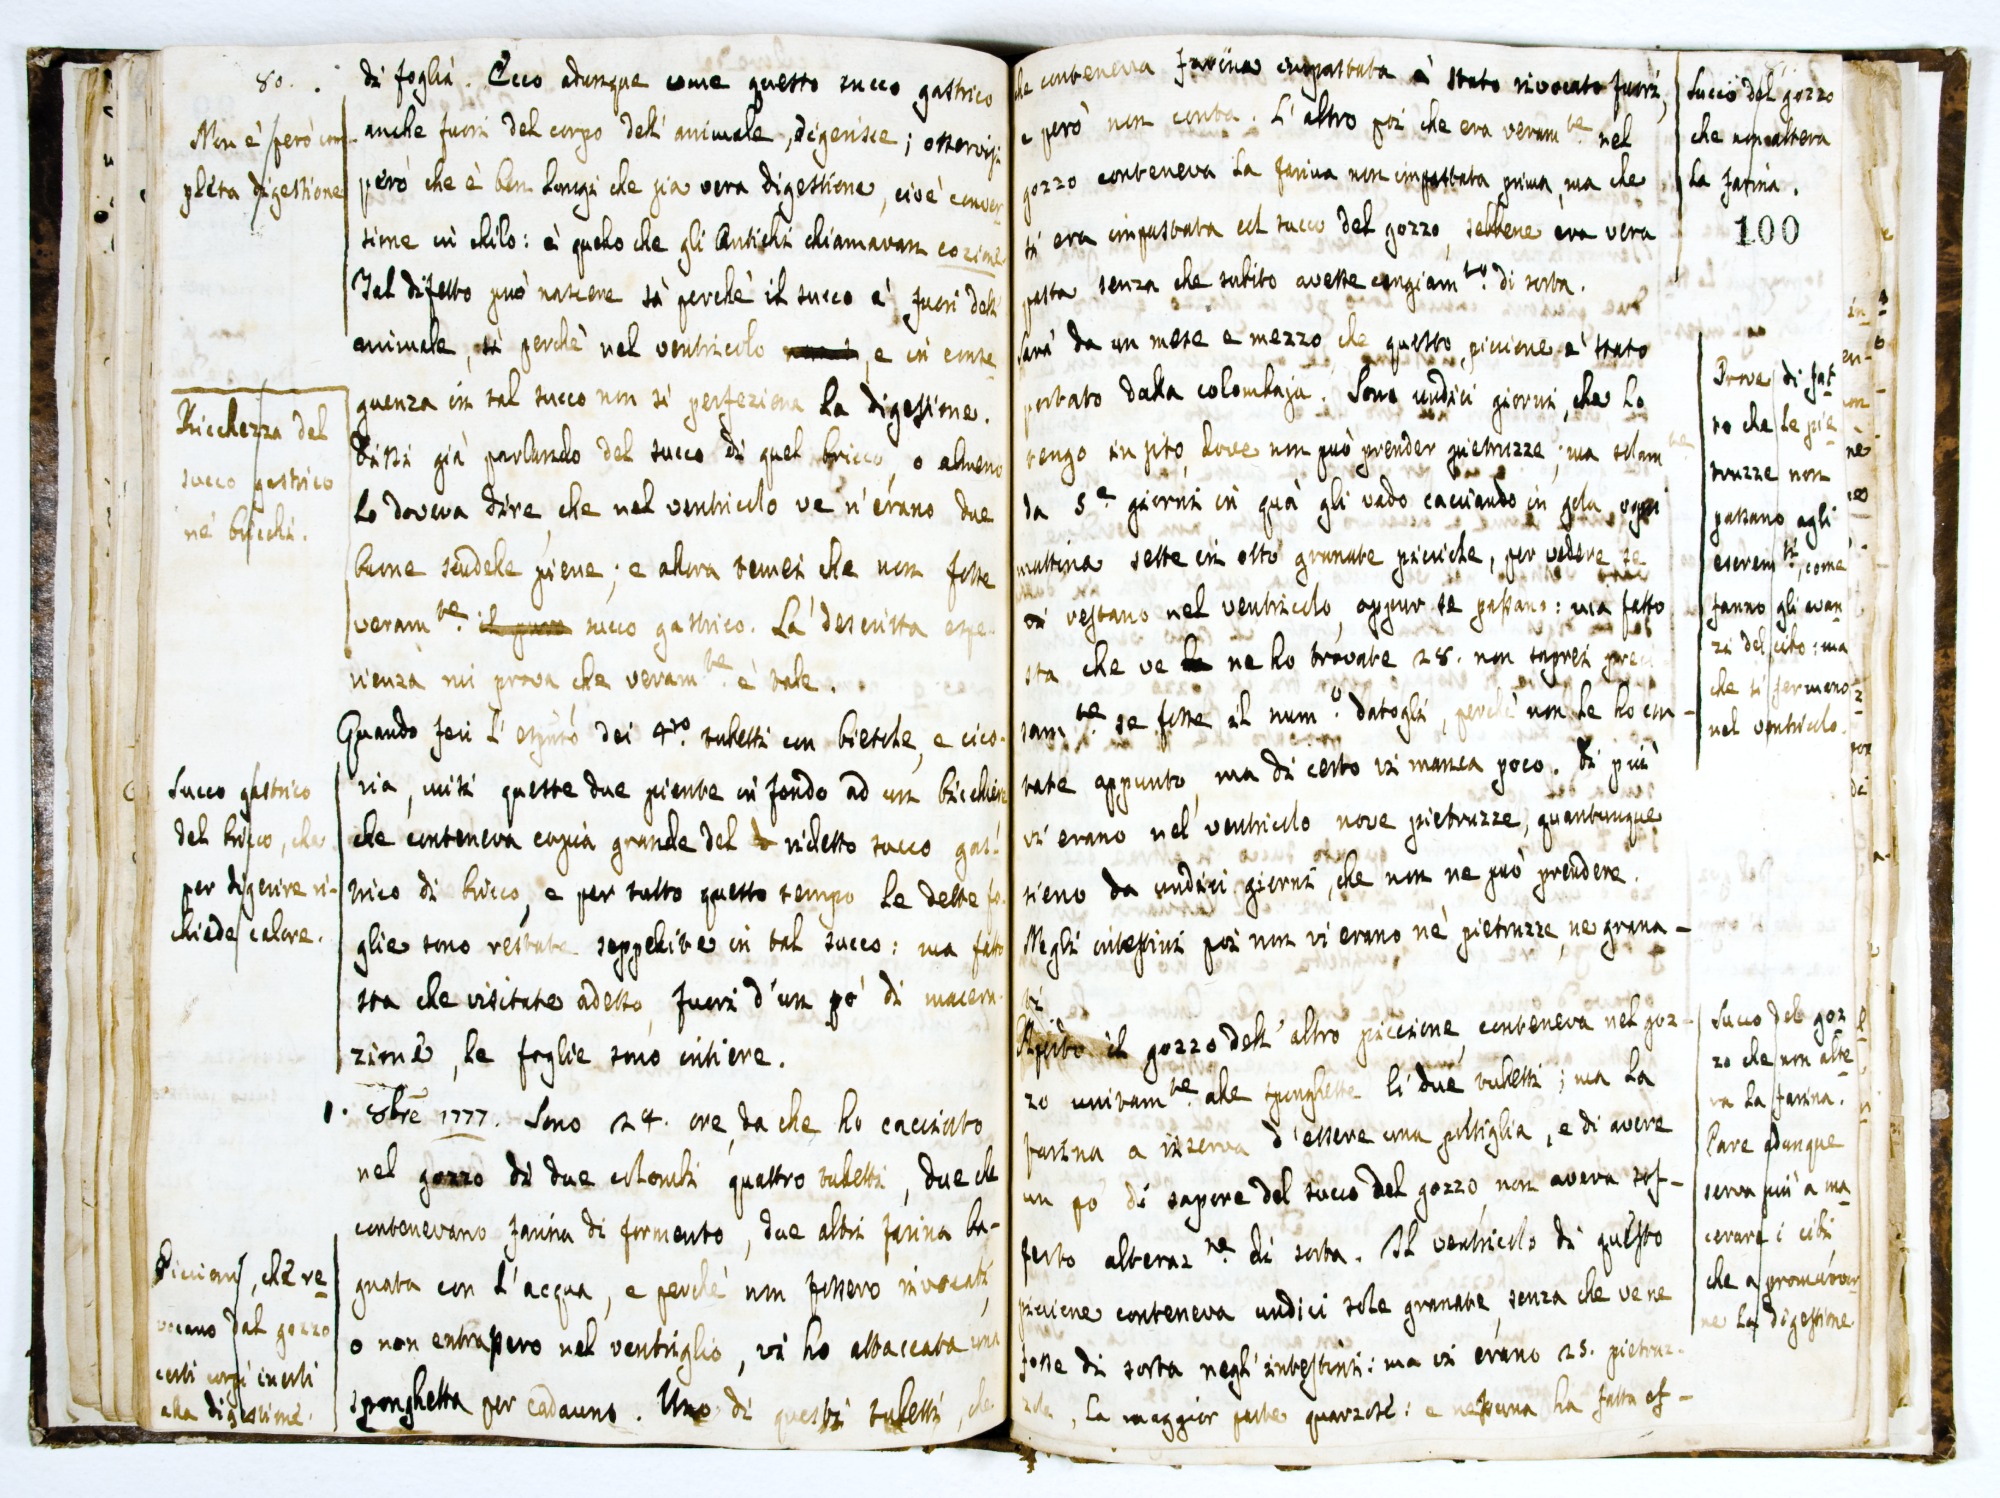 80.
di foglia. Ecco adunque come questo succo gastrico
anche fuori del corpo dell'animale, digerisce; osservisi
però che è ben lungi che sia vera digestione, cioè conver
sione in chilo: è quello che gli Antichi chiamavan cozione
Tal difetto può nascere sà perchè il succo è fuori dell'
animale, sì perchè nel ventricolo , e in conse
guenza in tal succo non si perfeziona la digestione.
Dissi già parlando del succo di quel bricco, o almeno
lo doveva dire, che nel ventricolo ve n'erano due
buone scudele piene; e allora temei che non fosse
veram.te il puro succo gastrico. La descritta espe-
rienza mi prova che veram.te è tale.
Quando feci l' dei 4ro. tubetti con bietole, e cico-
ria, misi queste due piante in fondo ad un bicchiere
che conteneva copia grande del ridetto succo gas-
trico di bricco, e per tutto questo tempo le dette fo-
glie sono restate seppelite in tal succo: ma fatto
sta che visitate adesso, fuori d'un pò di macera-
zione, le foglie sono intiere.
1. 8bre 1777. Sono 24. ore, da che ho cacciato
nel gozzo di due colombi quattro tubetti, due che
contenevano farina di formento, due altri farina ba-
gnata con l'acqua, e perchè non fossero rivocati,
o non entrassero nel ventriglio, vi ho attaccata una
sponghetta per cadauno. Uno di questi tubetti, che
Non è però com-
pleta digestione
Ricchezza del
succo gastrico
ne' bricchi.
Succo gastrico
del bricco, che
per digerire ri-
chiede calore.
Piccioni, che re
vocano dal gozzo
certi corpi inetti
alla digestione.
che conteneva farina impastata è stato rivocato fuori,
e però non conta. L'altro poi che era veram.te nel
gozzo conteneva la farina non impastata prima, ma che
si era impastata col succo del gozzo, sebbene era vera
pasta senza che subito avesse cangiam.to di sorta.
Sarà da un mese e mezzo che questo piccione è stato
portato dalla colombaja. Sono undici giorni, che lo
tengo in sito, dove non può prender pietruzze; ma solam.te
da 5.e giorni in quà gli vado cacciando in gola ogni
mattina sette in otto granate picciole, per vedere se
vi restano nel ventricolo, oppur se passano: ma fatto
sta che ve ne ho trovate 28. non saprei preci
sam.te se fosse il num.o datogli, perchè non le ho con-
tate appunto, ma di certo vi manca poco. Di più
vi erano nel ventricolo nove pietruzze, quantunque
sieno da undici giorni, che non ne può prendere.
Negli intestini poi non vi erano nè pietruzze, ne grana-
ti
Aperto il gozzo dell'altro piccione conteneva nel goz-
zo unitam.te alle sponghette li due tubetti; ma la
farina a riserva d'essere una poltiglia, e di avere
un pò di sapore del succo del gozzo, non aveva sof-
ferto alteraz.ne di sorta. Il ventricolo di questo
piccione conteneva undici sole granate, senza che ve ne
fosse di sorta negl'intestini: ma vi erano 25. pietruz-
zole, la maggior parte quarzose: e nessuna ha fatta ef-
Succo del gozzo
che non altera
la farina.
100
Prove di fat
to che le pie
truzze non
passano agli
escrem.ti, come
fanno gli avan
zi del cibo: ma
che si fermano
nel ventricolo.
Succo del goz
zo che non alte
ra la farina.
Pare adunque
serva più a ma
cerare i cibi
che a promuover
ne la digestione